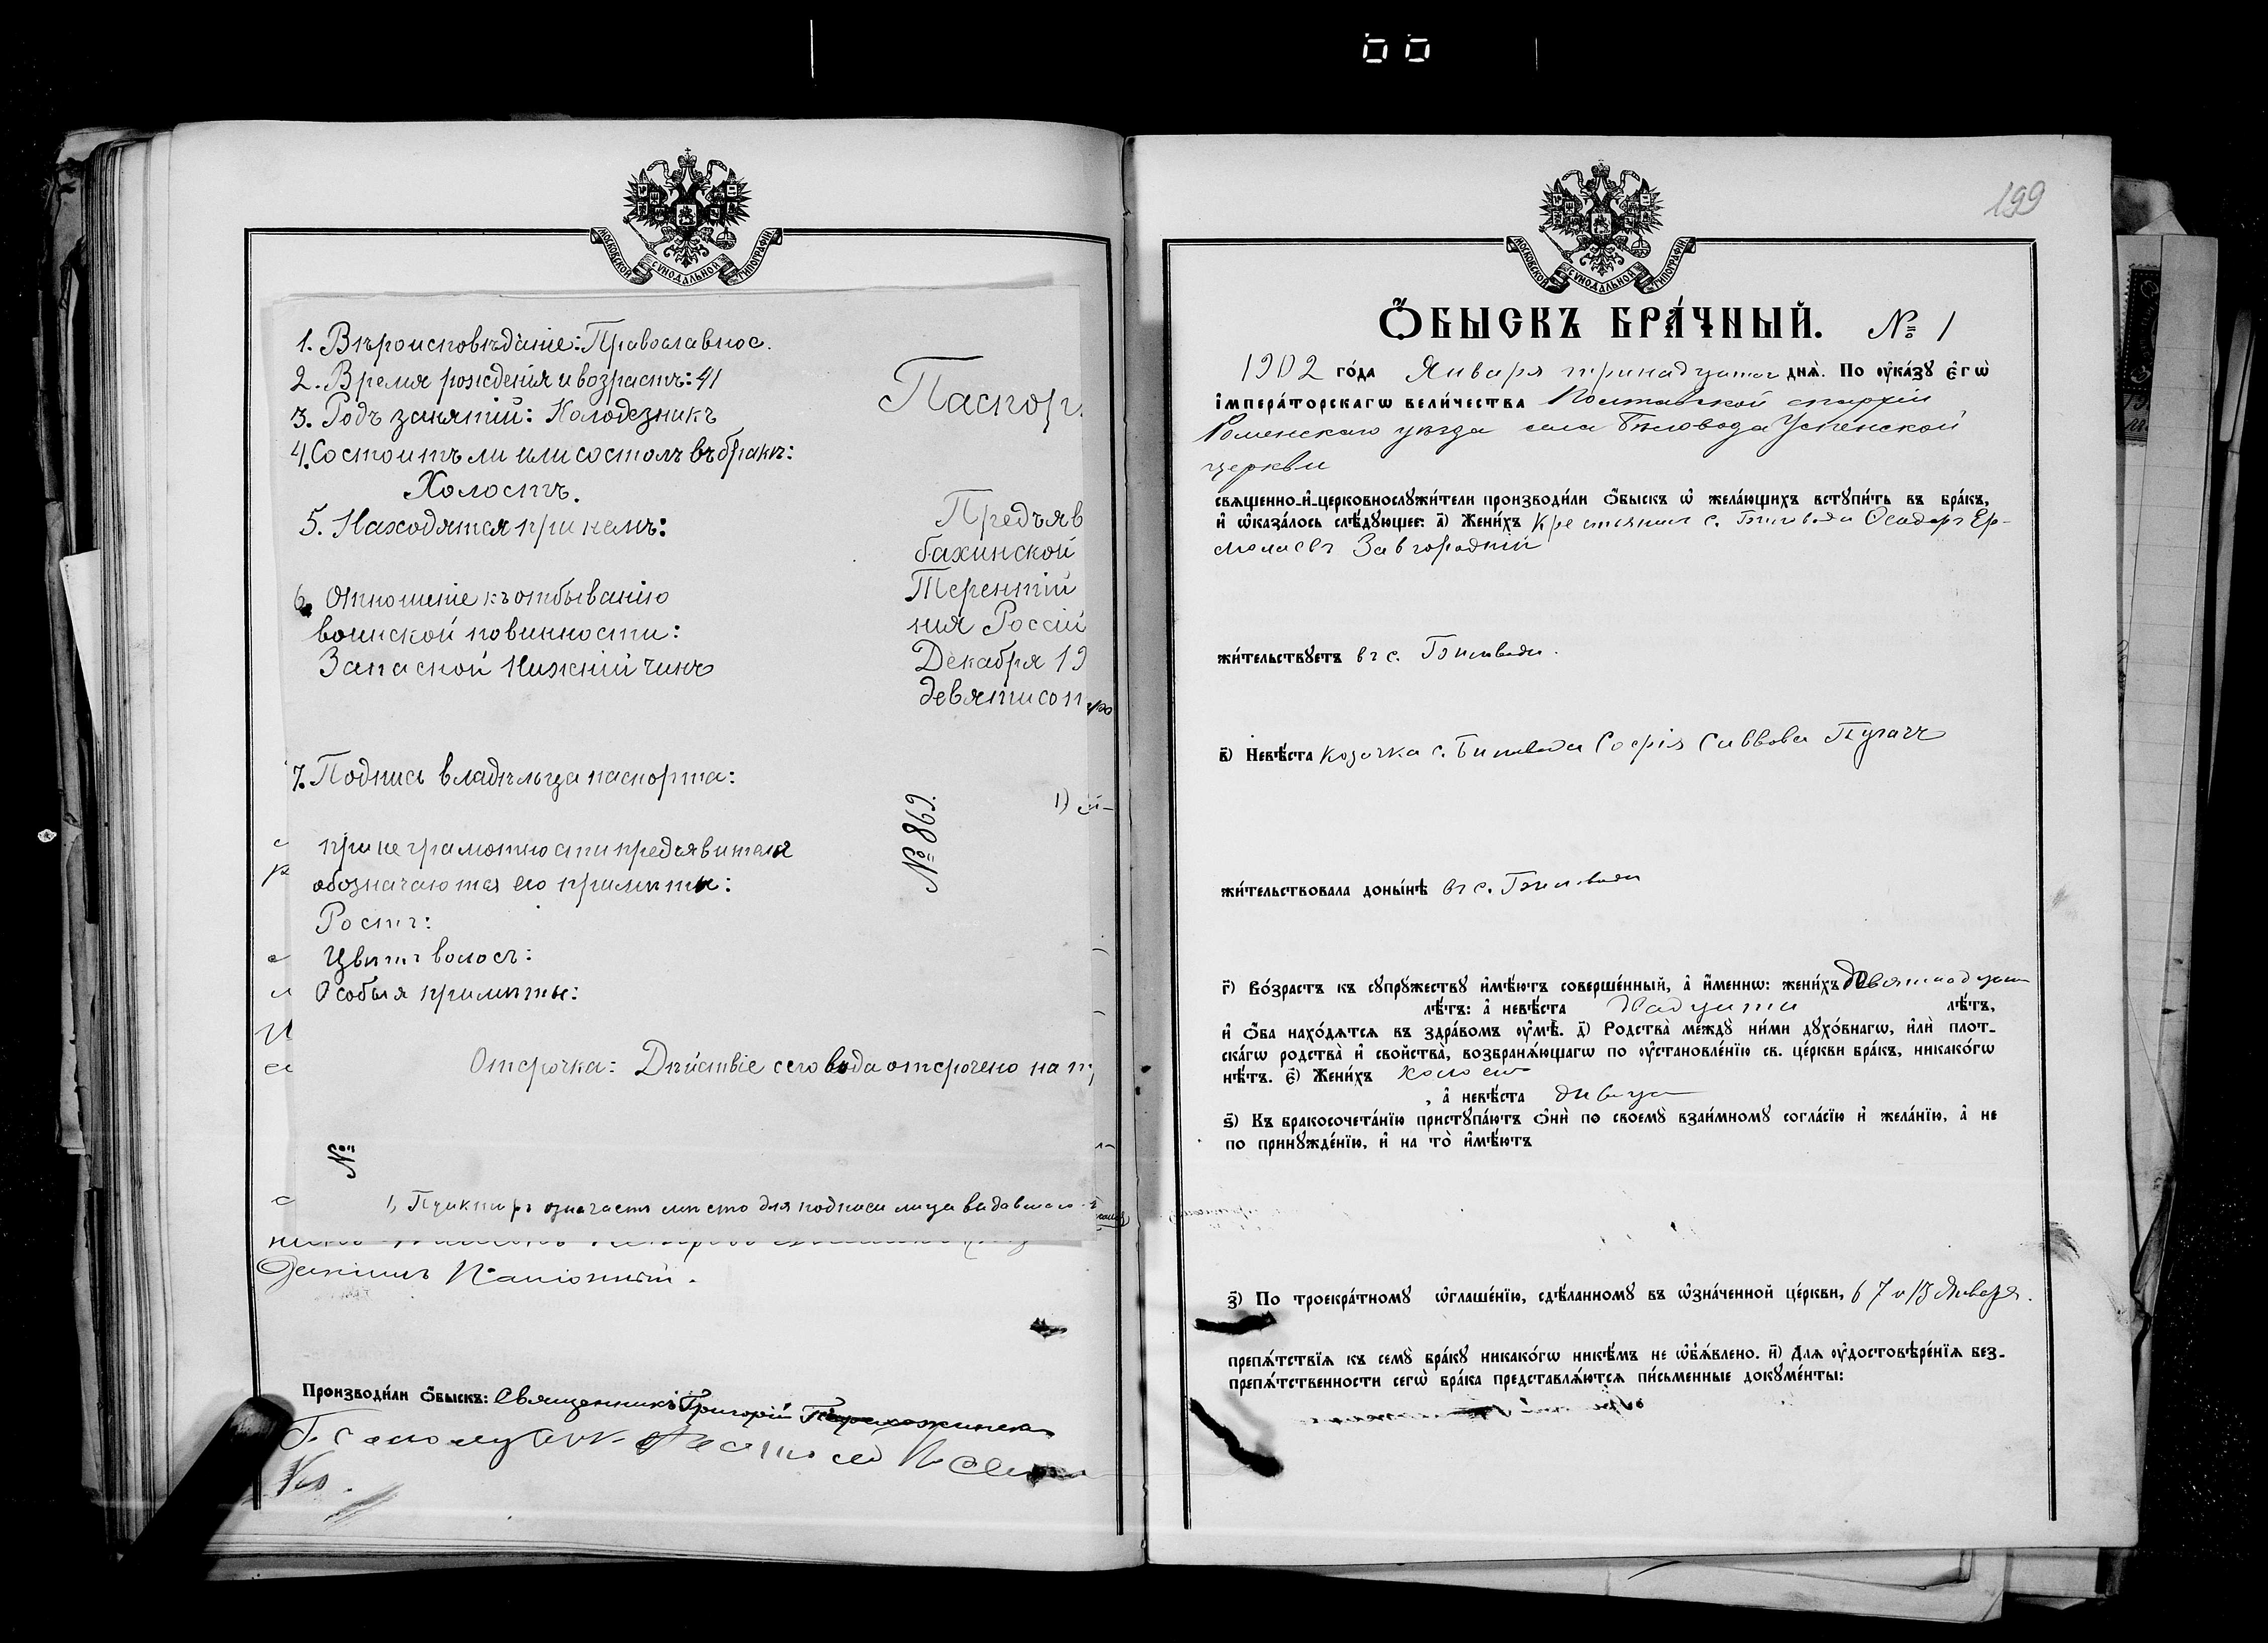 МОСКОВСКОЙ СУНОДАЛЬНОЙ ТИПОГРАФІИ
1. Вѣроисповѣданіе: Православное.
2. Время рожденія и возрастъ: 41
3. Родъ занятій: Колодезникъ
4. Состоитъ ли или состоялъ въ бракѣ:
Холостъ.
5. Находятся при немъ:
6. Отношеніе къ отбыванію
воинской повинности:
Запасной Нижній чинъ
7. Подпись владѣльца паспорта:
при неграмотности предъявителя
обозначаются его примѣты:
Ростъ:
Цвѣтъ волосъ:
Особыя примѣты:
Паспор
Предъяв
бахинской
Терентій
нія Россій
Декабря 19
девятисот
№ 869.
1)
Отсрочка: Дѣйствіе сего вода отсрочено на
№
1, Пунктиръ означаетъ мѣсто для подписи лица
Производи́ли Ѻ҆быскъ: Священникъ Григорій
199
МОСКОВСКОЙ СУНОДАЛЬНОЙ ТИПОГРАФІИ
Ѻ҆БЫСКЪ БРА́ЧНЫЙ. № 1
1902 го́да Января тринадцатаго днѧ̀. По ᲂу҆ка́зꙋ є҆гѡ̀
і҆мпера́торскагѡ вели́чества Полтавской епархіи
Роменскаго уѣзда села Бѣловода Успенской
церкви
свѧще́нно-и҆-церковнослꙋжи́тели производи́ли ѻ҆́быскъ ѡ҆ жела́ющихъ встꙋпи́ть въ бра́къ,
и҆ ѡ҆каза́лось слѣ́дꙋющее: а҃) Жени́хъ крестьянинъ с. Бѣловода Ѳеодоръ Ер-
молаевъ Завгородній
жи́тельствꙋетъ въ с. Бѣловоди.
в҃) Невѣ́ста козачка с. Бѣловода Софія Саввова Пугачъ
жи́тельствовала доны́нѣ въ с. Бѣловоди
г҃) Во́зрастъ къ сꙋпрꙋ́жествꙋ и҆мѣ́ютъ соверше́нный, а҆ и҆́менно: жени́хъ девятнадцати
лѣ́тъ: а҆ невѣ́ста двадцати лѣ́тъ,
и҆ ѻ҆́ба нахо́дѧтсѧ въ здра́вомъ ᲂу҆мѣ̀. д҃) Родства̀ междꙋ̀ ни́ми дꙋхо́внагѡ, и҆лѝ плот-
ска́гѡ родства̀ и҆ свойства̀, возбранѧ́ющагѡ по ᲂу҆становле́нїю св. це́ркви бра́къ, никако́гѡ
нѣ́тъ. є҃) Жени́хъ холостъ
, а҆ невѣ́ста дѣвица
ѕ҃) Къ бракосочета́нїю пристꙋпа́ютъ ѻ҆нѝ по своемꙋ̀ взаи́мномꙋ согла́сїю и҆ жела́нїю, а҆ не
по принꙋжде́нїю, и҆ на то̀ и҆мѣ́ютъ
з҃) По троекра́тномꙋ ѡ҆глаше́нїю, сдѣ́ланномꙋ въ ѡ҆зна́ченной це́ркви, 6 7 и 13 Января.
препѧ́тствїѧ къ семꙋ̀ бра́кꙋ никако́гѡ никѣ́мъ не ѡ҆б̾ѧ́влено. и҃) Длѧ ᲂу҆достовѣре́нїѧ без-
препѧ́тственности сегѡ̀ бра́ка представлѧ́ютсѧ пи́сьменные докꙋме́нты: